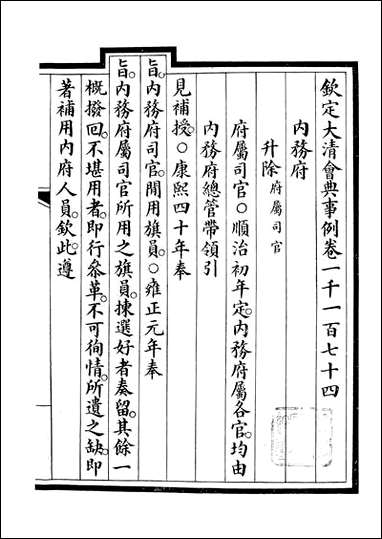 欽定大清會典事例卷一千一百七十四
內務府
升除府屬司官
府屬司官○順治初年定。內務府屬各官。均由
內務府總管帶領引
見補授。○康熙四十年奉
旨。內務府司官。閒用旗員。○雍正元年奉
旨。內務府屬司官所用之旗員。揀選好者奏留。其餘一
概撥回。不堪用者。即行參革。不可徇情。所遺之缺。即
著補用內府人員。欽此。遵